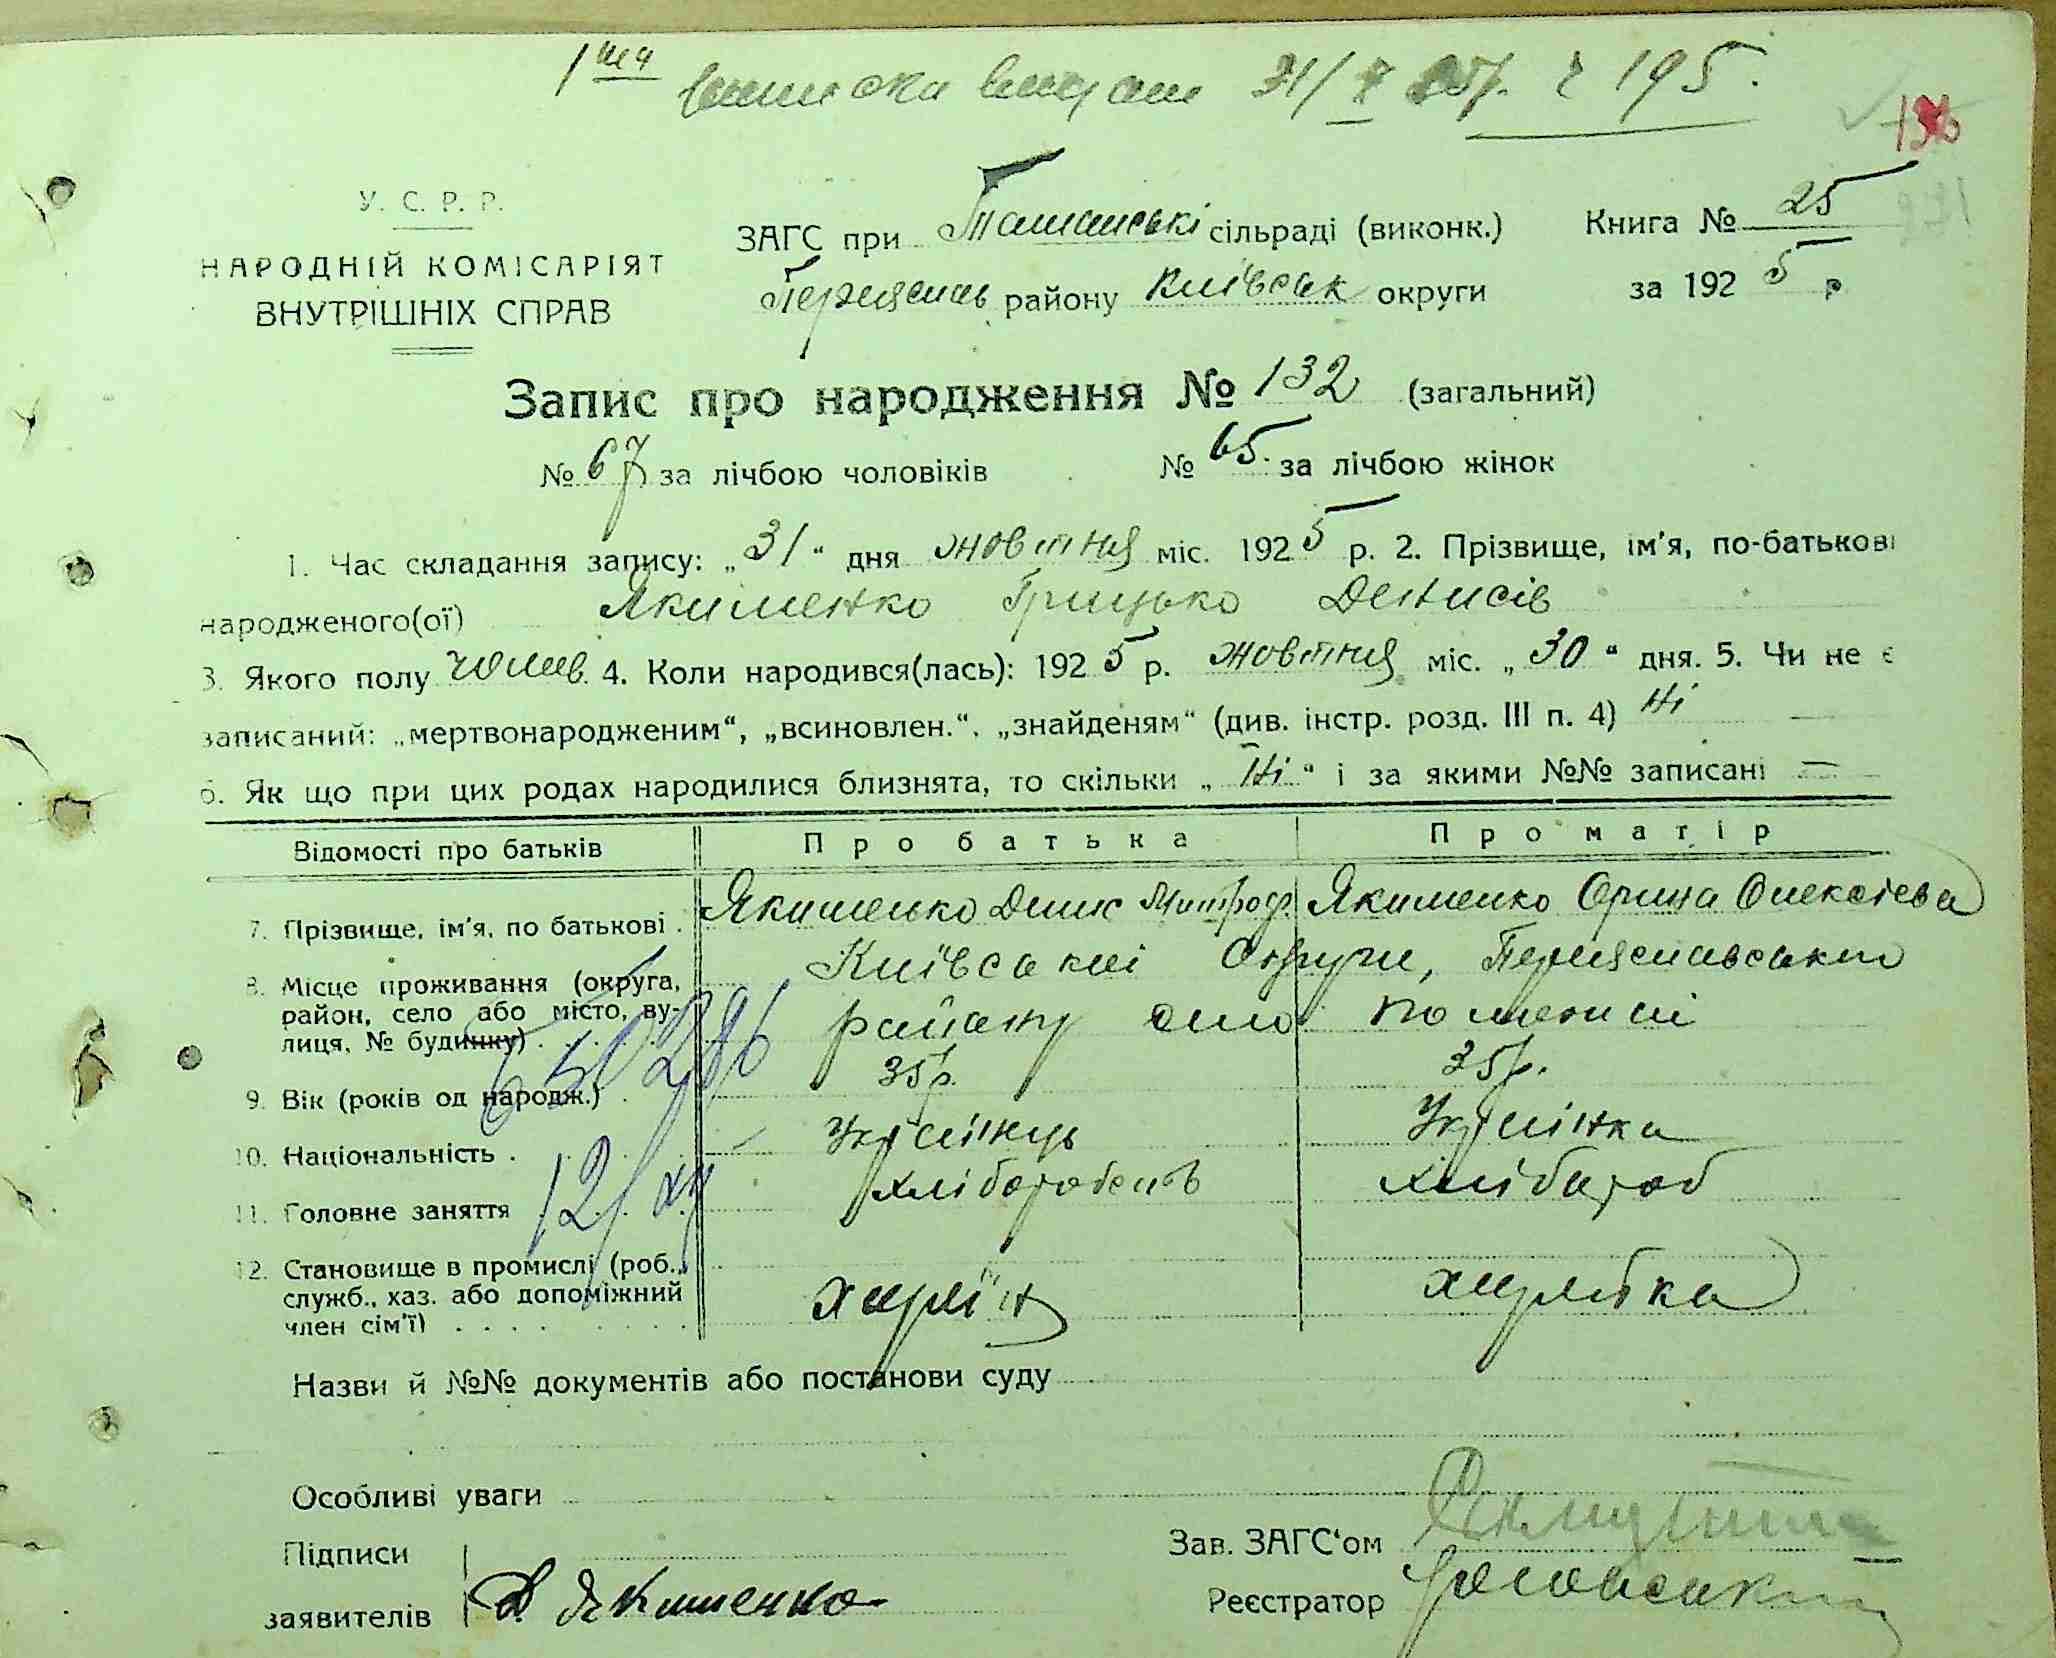 1ша виписка видана 21/X 25р. № 195.
У. С. Р. Р.
НАРОДНІЙ КОМІСАРІЯТ
ВНУТРІШНІХ СПРАВ
ЗАГС при Ташанські сільраді (виконк.)
Переяслав району Київськ округи
Книга № 25
за 192 5 р
Запис про народження № 132 (загальний)
№ 67 за лічбою чоловіків № 65. за лічбою жінок
1. Час складання запису: „31“ дня жовтня міс. 192 5 р. 2. Прізвище, ім'я, по-батькові
народженого(ої) Якименко Грицько Денисів
3. Якого полу чолов. 4. Коли народився(лась): 192 5 р. жовтня міс. „30“ дня. 5. Чи не є
записаний: „мертвонародженим“, „всиновлен.“, „знайденям“ (див. інстр. розд. III п. 4) Ні
6. Як що при цих родах народилися близнята, то скільки „Ні“ і за якими №№ записані —
Відомості про батьків Про батька Про матір
7. Прізвище, ім'я, по батькові . Якименко Денис Митроф. Якименко Орина Олексієва
8. Місце проживання (округа, район, село або місто, вулиця, № будинку) . . . . Київської Округи, Переяславського
району село
9. Вік (років од народж.) . 35р. 35р.
10. Національність . Українець Українка
11. Головне заняття хлібороб
12. Становище в промислі (роб., служб., хаз. або допоміжний член сім'ї) . . . .
Назви й №№ документів або постанови суду
Особливі уваги
Підписи
заявителів Д. Якименко
Зав. ЗАГС'ом
Реєстратор